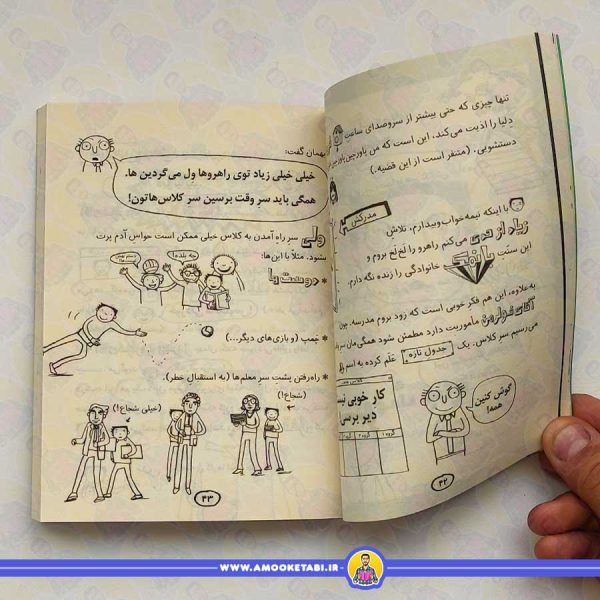 تنها چیزی که حتی بیشتر از سروصدای ساعت
دلیا را اذیت می‌کند، این است که من پاورچین
دستشویی. (متنفر است از این قضیه.)
مدرکش
با اینکه نیمه‌خواب‌وبیدارم، تلاش
زیاد از حدی می‌کنم راهرو را لخ‌لخ بروم و
این سنّت بانمک خانوادگی را زنده نگه دارم.
به‌علاوه، این هم فکر خوبی است که زود بروم مدرسه. چون
آقای فولرمن مأموریت دارد مطمئن شود همگی‌مان سر
می‌رسیم سر کلاس. یک جدول تازه عَلَم کرده به اسم
کار خوبی
دیر برسی
گوش کنین
همه!
۴۲
بهمان گفت:
خیلی خیلی زیاد توی راهروها ول می‌گردین ها.
همگی باید سر وقت برسین سر کلاس‌هاتون!
ولی سر راهِ آمدن به کلاس خیلی ممکن است حواس آدم پرت
شود. مثلاً با این‌ها:
* دوست‌ها
چه بلده!
* چمپ (و بازی‌های دیگر...)
* راه‌رفتن پشت سرِ معلم‌ها (به استقبال خطر.)
(خیلی شجاع!)
(شجاع!)
(شجاع!)
۴۳
WWW.AMOOKETABI.IR